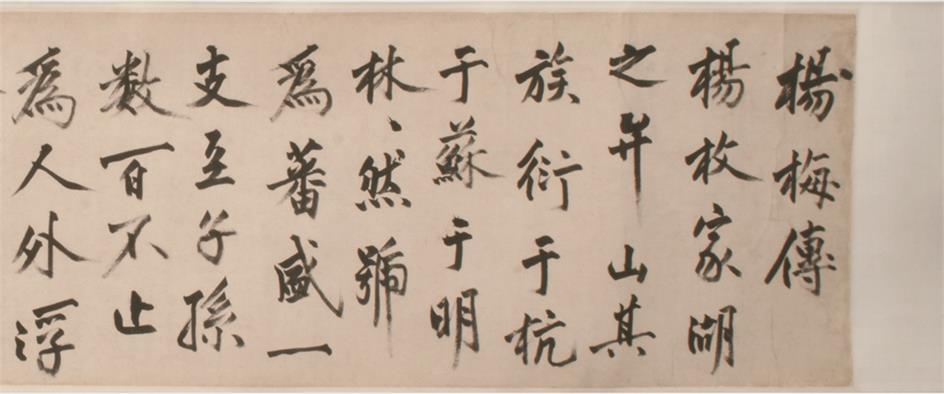 楊梅傳
楊枚家湖
之弁山其
族衍于杭
于蘇于明
林〻然號
爲蕃盛一
支至子孫
數百不止
爲人外浮